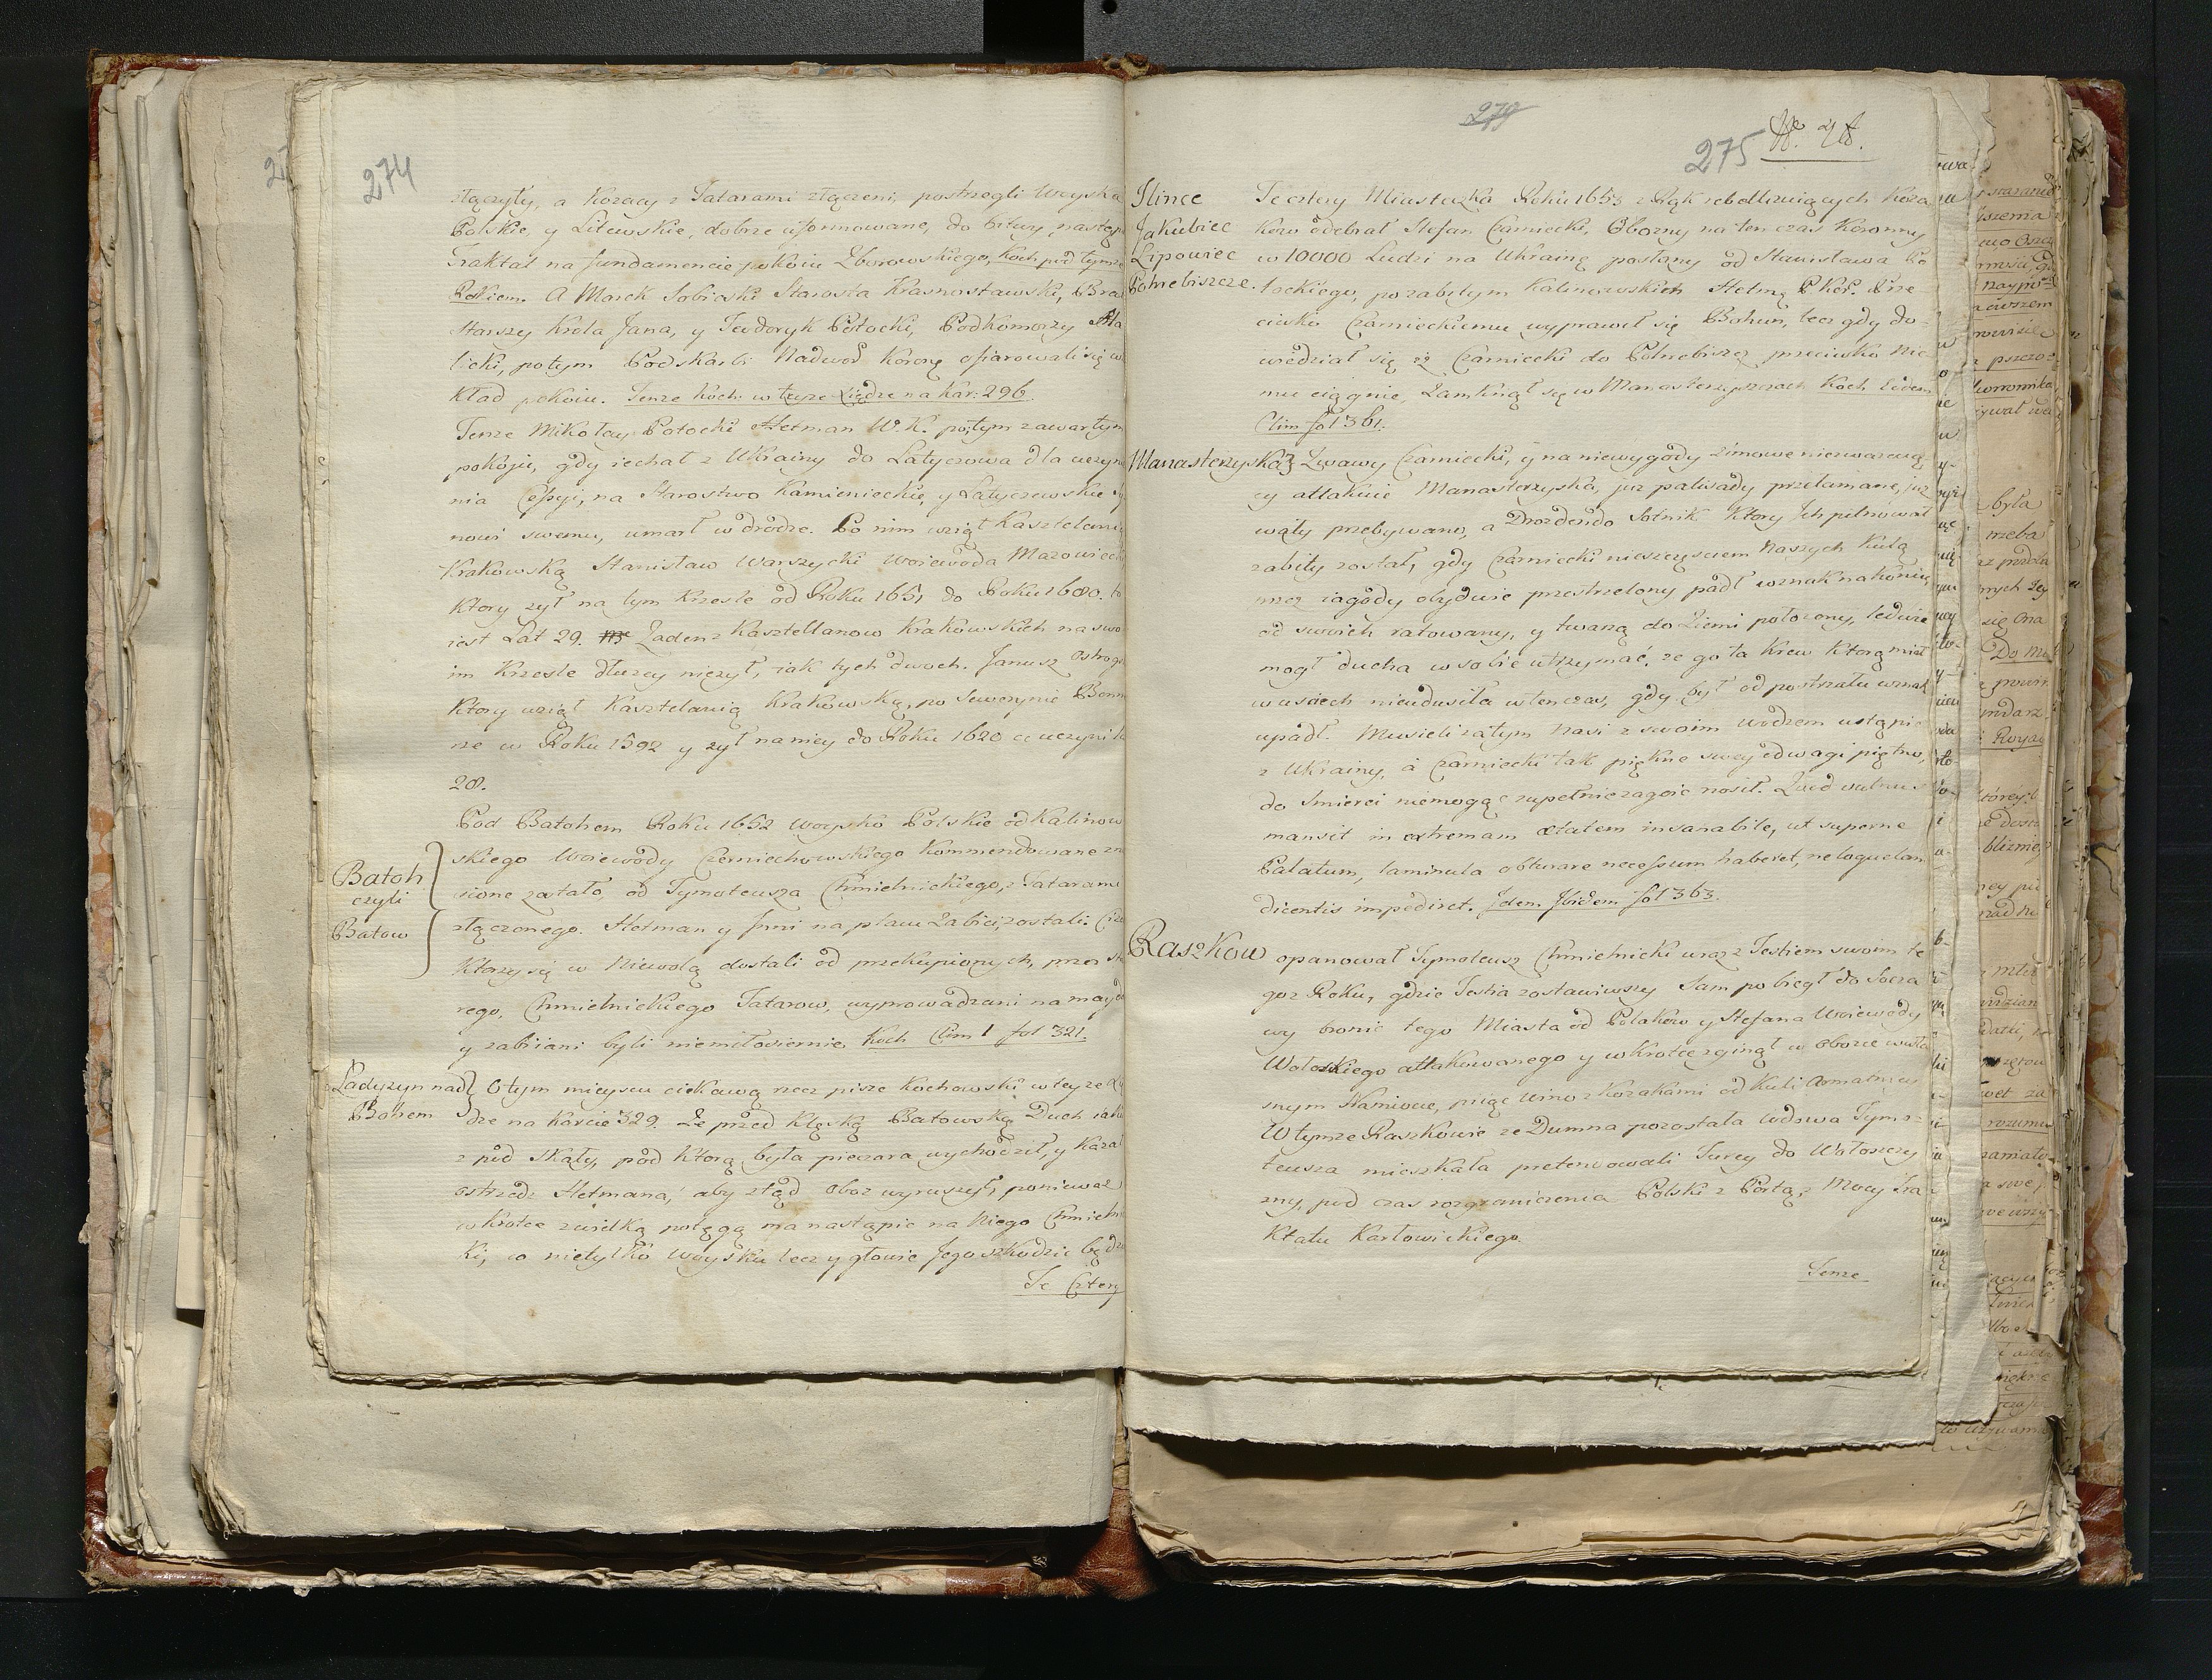 274
złączyły, a Kozacy z Tatarami złączeni, postrzegli Woyska
Polskie, y Litewskie, dobrze uformowane, do bitwy, nastąp
Traktat na fundamencie pokoiu Zborowskiego, Koch pod tymze
Rokiem. A Marek Sobieski Starosta Krasnostawski, Brat
Starszy Krola Jana, y Teodoryk Potocki, Podkomorzy Ha
licki, potym Podskarbi Nadwod Koronę ofiarowali się w
kład pokoiu. Tenze Koch: w teyze Xiędze na Kar: 296.
Tenze Mikołay Potocki Hetman W. K. po tym zawartym
pokoju, gdy iechał z Ukrainy do Latyczowa dla uczyn
nia Cessyi, na Starostwo Kamienieckie, y Latyczewskie
nowi swemu, umarł w drodze. Po nim wziął Kasztelanią
Krakowską Stanisław Warszycki Woiewoda Mazowiecki
Ktory zył na tym Krzesle od Roku 1651 do Roku 1680. to
iest Lat 29. Zaden z Kasztellanow Krakowskich na swo
im Krzesle dłuzey niezył, iak tych dwoch. Janusz Ostrogs
Ktory wziął Kasztelanią Krakowską, po Sewerynie Bonn
rze w Roku 1592 y zył na niey do Roku 1620 co uczyni la
28.
Pod Batohem Roku 1652 woysko Polskie od Kalinow
Batoh
czyli
Batow
skiego Woiewody Czerniechowskiego Kommendowane zn
sione zastało, od Tymoteusza Chmielnickiego, z Tatarami
złączonego. Hetman y Jnni na placu Zabici zostali. Ci ze
Ktorzy się w Niewolą dostali od przekupionych, przez sta
rego, Chmielnickiego Tatarow, wyprowadzani na mayd
y zabiiani byli niemiłosiernie Koch Clim 1 fol 321.
Ladyzyn nad
Bohem
O tym mieyscu ciekawą rzecz pisze Kochowski w teyze Xię
dze na karcie 329. Ze przed Klęską Batowską Duch iaki
z pod skały, pod ktorą była pieczara wychodził, y Kazał
ostrzedz Hetmana, aby ztąd oboz wyruszył, poniewaz
w krotce z wielką potęgą ma nastąpic na Niego Chmieln
ki, co nietylko Woysku lecz y głowie Jego szkodzic będz
Te Cztery
279
275
Ilince
Jakubiec
Lipowiec
Pohrebiszcze.
Te cztery Miasteczka Roku 1653 z Rąk rebellizuiących Koza
kow odebrał Stefan Czarniecki, Obozny na ten czas Koronny
w 10000 Ludzi na Ukrainę posłany od Stanisława Po
tockiego, po zabitym Kalinowskich Hetmą P Kor. Prze
ciwko Czarnieckiemu wyprawił się Bohun, lecz gdy do-
wiedział się iz Czarniecki do Pohrebiszcz przeciwko Nie
mu ciągnie, Zamknął się w Manasterzyszczach Koch Eidem
Clim fol 361.
Manasterzyska
Zwawy Czarniecki, y na niewygody zimowe niezwazaią
cy attakuie Manasterzyska, juz palisady przełamane, juz
wały przebywano, a Drozdendo Sotnik Ktory Jch pilnował
zabity został, gdy Czarniecki nieszczęsciem Naszych Kulą
przez iagody obydwie przestrzelony padł wznak na koniu
od swoich ratowany, y twarzą do Ziemi połozony, ledwie
mogł ducha w sobie utrzymać, ze go ta Krew Ktorą miał
w usciech nieudusiła w ten czas, gdy był od postrzału wznak
upadł. Musieli zatym Nasi z swoim Wodzem ustąpic
z Ukrainy, a Czarniecki tak piękne swey odwagi piętno,
do Smierci niemogąc zupełnie zagoic nosił. Quod vulnus
mansit in extremam ætatem insanabile, ut superne
Palatum, laminula obturare necessum haberet, ne loquelam
dicentis impediret. Jdem Jbidem fol 363.
Raszkow
opanował Tymoteusz Chmielnicki wraz z Testiem swoim te
goz Roku, gdzie Testia zostawiwszy Sam pobiegł do Socza
wy bronic tego Miasta od Polakow y Stefana Woiewody
Wołoskiego attakowanego y w Krotce zginął w Obozie włas
snym Namiocie, piiąc wino z Kozakami od Kuli Armatney
W tymze Raszkowie ze Dumna pozostała wdowa Tymo-
teusza mieszkała pretendowali Turcy do Wołoszczy
zny, pod czas rozgraniczenia Polski z Portą, z Mocy Tra
Ktatu Karłowickiego.
Tenze